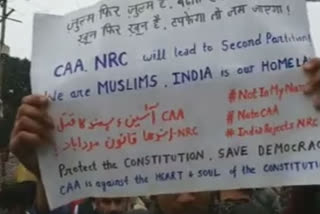 ज़ुल्म फिर ज़ुल्म है,
खून फिर खून है, टपकेगा तो जम जाएगा!
CAA, NRC will lead to Second Partition
We are MUSLIMS, INDIA is our HOMELA
CAA آئین و
#NotInMyName
NRC قانون مردآباد!
#NotoCAA
#IndiaRejects NRC
Protect the CONSTITUTION, SAVE DEMOCRAC
CAA is against the HEART & SOUL of the CONSTITUTION